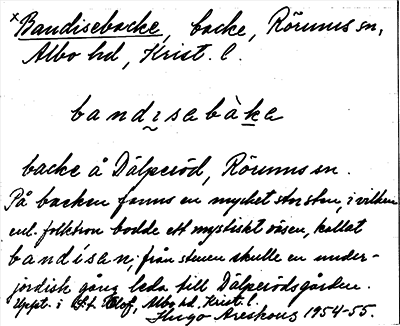 ×Bandisebacke, backe, Rörums sn,
Albo hd, Krist. l.
bandisabàka
backe å Dälperöd, Rörums sn.
På backen fanns en mycket stor sten, i vilken
enl. folktron bodde ett mystiskt väsen, kallat
bandísan; från stenen skulle en under-
jordisk gång leda till Dälperödsgården.
Uppt. i S:t Olof, Albo hd, Krist. l.
Hugo Areskoug 1954-55.